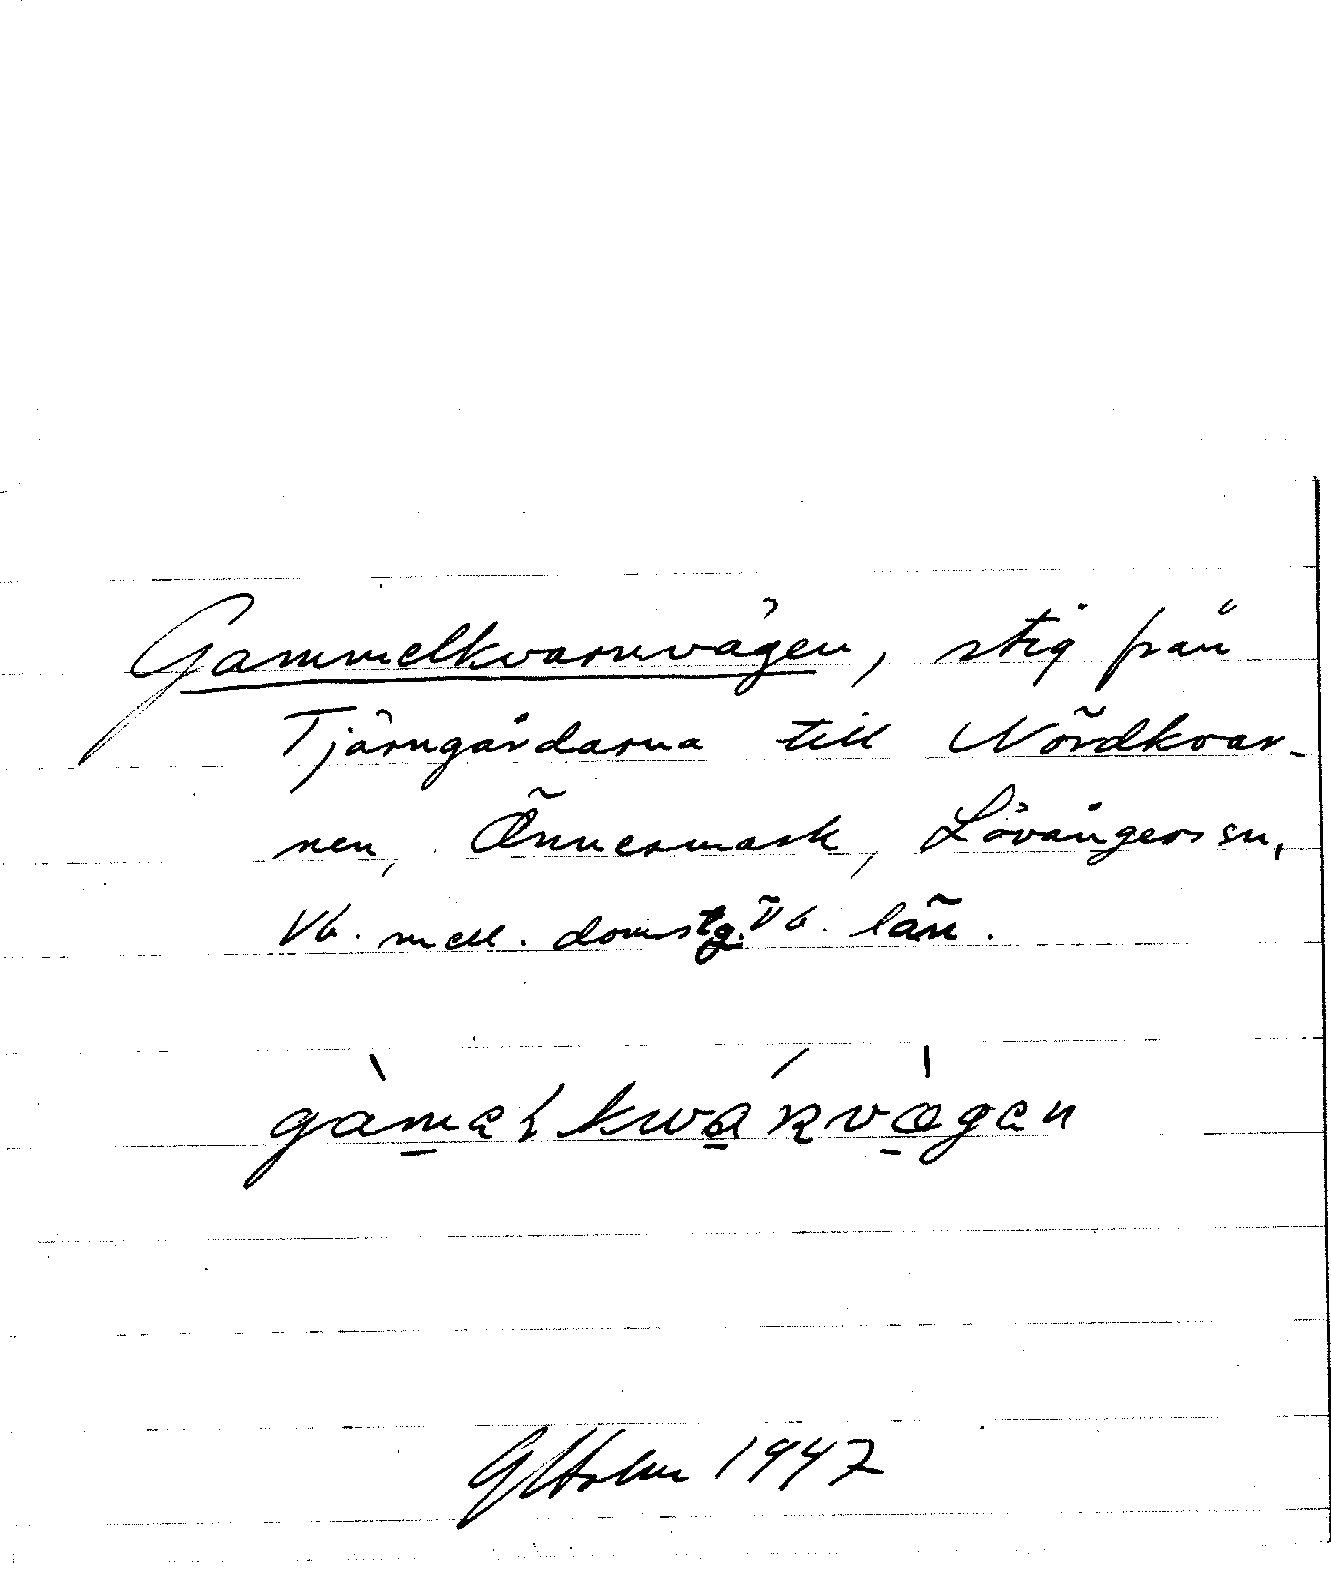 Gammelkvarnvägen, stig från
Tjärngårdarna till Nördkvar-
nen, Önnesmark, Lövångers sn,
Vb. mell. domstg. Vb. län.
GHolm 1947